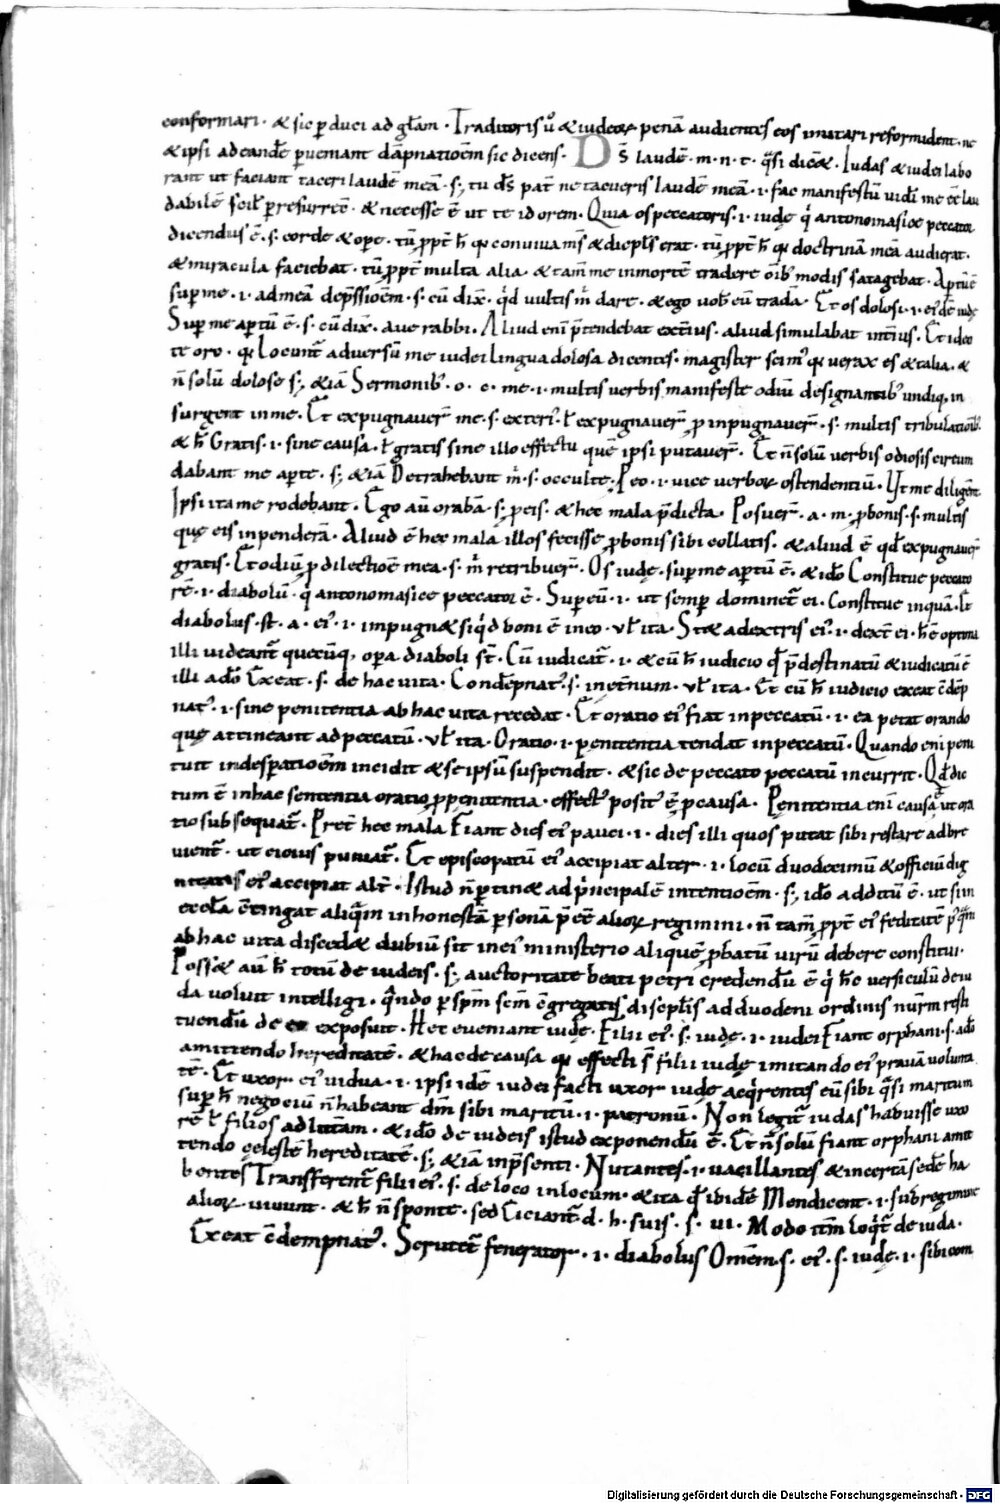 conformari · & sic ꝑduci ad gl̄am · Traditoris ū & iudeoꝝ penā audientes eos imitari reformident · ne
& ipsi ad eandē ꝑueniant dāpnatiōem sic dicens · D̄s laudē · m · n · t · q̄si dic& · Iudas & iudei labo
rant ut faciant taceri laudē meā · s; tu d̄s pat̄ ne tacueris laudē meā · i · fac manifestū
dabilē scil; ꝑ resurrect̄ · & necesse ē ut te id orem · Quia os peccatoris · i · iudę q̄ antonomasice peccator
dicendus ē · s · corde & ope · tū ꝓpt̄ h̄ qđ conviva m̄s & discipl̄s erat · tū ꝓpt̄ h̄ qđ doctrinā meā audierat ·
& miracula faciebat · tū ꝓpt̄ multa alia · & tam̄ me in mortē tradere om̄ib; modis satagebat · Aptū ē
sup me · i · ad meā dep̄ssiōem · s · cū dix̄ · qđ vultis m̄ dare · & ego vob̄ eū tradā · Et os dolosi · i · ei; dē iudę
Sup me aptū ē · s · cū dix̄ · ave rabbi · Aliud eni p̄tendebat ext̄ius · aliud simulabat int̄ius · Et ideo
te oro · qđ Locunt̄ adversū me iudei lingua dolosa dicentes · magister scim; qđ verax es & talia · &
n̄ solū dolose s; & iā Sermonib; · o · c · me · i · multis verbis manifeste odiū designantib; undiq; in
surgent in me · Et expugnaver̄ me · s · exteri; · ł expugnaver̄ ꝓ inpugnaver̄ · s · multis tribulationib;
& h̄ Gratis · i · sine causa · ł gratis sine illo effectu quē ipsi putaver̄ · Et n̄ solū verbis odiosis circum
dabant me apte · s; & iā Detrahebant m̄ · s · occulte · P eo · i · vice verboꝝ ostendentiū · Ut me diligent̄
Ipsi ita me rodebant · Ego aū orabā · s; ꝑ eis · & hec mala p̄dicta · Posuer̄ · a · m · ꝓ bonis · s · multis
que eis inpenderā · Aliud ē hec mala illos fecisse ꝓ bonis sibi collatis · & aliud ē qđ expugnaver̄
gratis · Et odiū ꝓ dilectiōe mea · s · m̄ retribuer̄ · Os iudę · sup me aptū ē · & idō Constitue peccato
rē · i · diabolū · q̄ antonomasice peccator ē · Sup eū · i · ut semp dominet̄ ei · Constitue inquā · Et
diabolus · st̄ · a · ei; · i · impugn& siq̄d boni ē in eo · vł ita · St& a dextris ei; · i · dext̄ ei · hē optima
illi videant̄ quecūq; oꝑa diaboli st̄ · Cū iudicat̄ · i · & cū h̄ iudicio qđ p̄destinatū & iudicatū ē
illi a dō Exeat · s · de hac vita · Condēpnat; · s · in et̄num · vł ita · Et cū h̄ iudicio exeat c̄dēp
nat; · i · sine penitentia ab hac vita recedat · Et oratio ei; fiat in peccatū · i · ea petat orando
quę attineant ad peccatū · vł ita · Oratio · i · penitentia tendat in peccatū · Quando eni peni
tuit in desꝑatiōem incidit & se ipsū suspendit · & sic de peccato peccatū incurrit · Qđ dic
tum ē in hac sententia oratio ꝓ penitentia · effect; posit; ē ꝓ causa · Penitentia eni causat̄ ut ora
tio subsequat̄ · Pret̄ hec mala Fiant dies ei; pauci · i · dies illi quos putat sibi restare ad bre
vient̄ · ut citius puniat̄ · Et episcopatū ei; accipiat alter · i · locū duodecimū & officiū dig
nitatis ei; accipiat alt̄ · Istud n̄ ꝑtin& ad p̄ncipalē intentiōem · s; idō additū ē · ut si in
eccl̄a c̄tingat aliq̄m inhonestā ꝑsonā p̄ eē̄ alioꝝ regimini · n̄ tam̄ ꝓpt̄ ei; feditatē
ab hac vita disced& dubiū sit in ei; ministerio aliquē ꝓbatum virū debere constitui ·
Posset aū h̄ totū de iudeis · s; auctoritate beati petri credendū ē q̄ hc̄ versiculū de iu
da voluit intelligi · q̄ndo ꝑ sp̄m sc̄m c̄gregatis discipl̄is ad duodeni ordinis num̄m resti
tuendū de eo exposuit · Hec eveniant iudę · Filii ei; · s · iudę · i · iudei Fiant orphani · s · a dō
amittendo hereditatē · & hac de causa qđ effecti s̄ filii iudę imitando ei; pravā volunta
tē · Et uxor · ei; vidua · i · ipsi idē iudei facti uxor iudę acq̄rentes eū sibi q̄si maritum
sup h̄ negociū n̄ habeant dm̄ sibi maritū · i · patronū · Non legit̄ iudas habuisse uxo
rē ł filios ad litt̄am · & idō de iudeis istud exponendū ē · Et n̄ solū fiant orphani amit
tendo cęlestē hereditatē · s; & iā in p̄senti · Nutantes · i · vacillantes & incertā sedē ha
bentes Transferent̄ filii ei; · s · de loco in locum · & ita qđ ibidē Mendicent · i · sub regimine
alioꝝ vivant · & h̄ n̄ sponte · sed Eiciant̄ d · h · suis · s · vi · Modo itm̄ loq̄t̄ de iuda ·
Exeat c̄dempnat; · Scrutet̄ fenerator · i · diabolus Omēm · s · ei; · s · iudę · i · sibi com
Digitalisierung gefördert durch die Deutsche Forschungsgemeinschaft · DFG